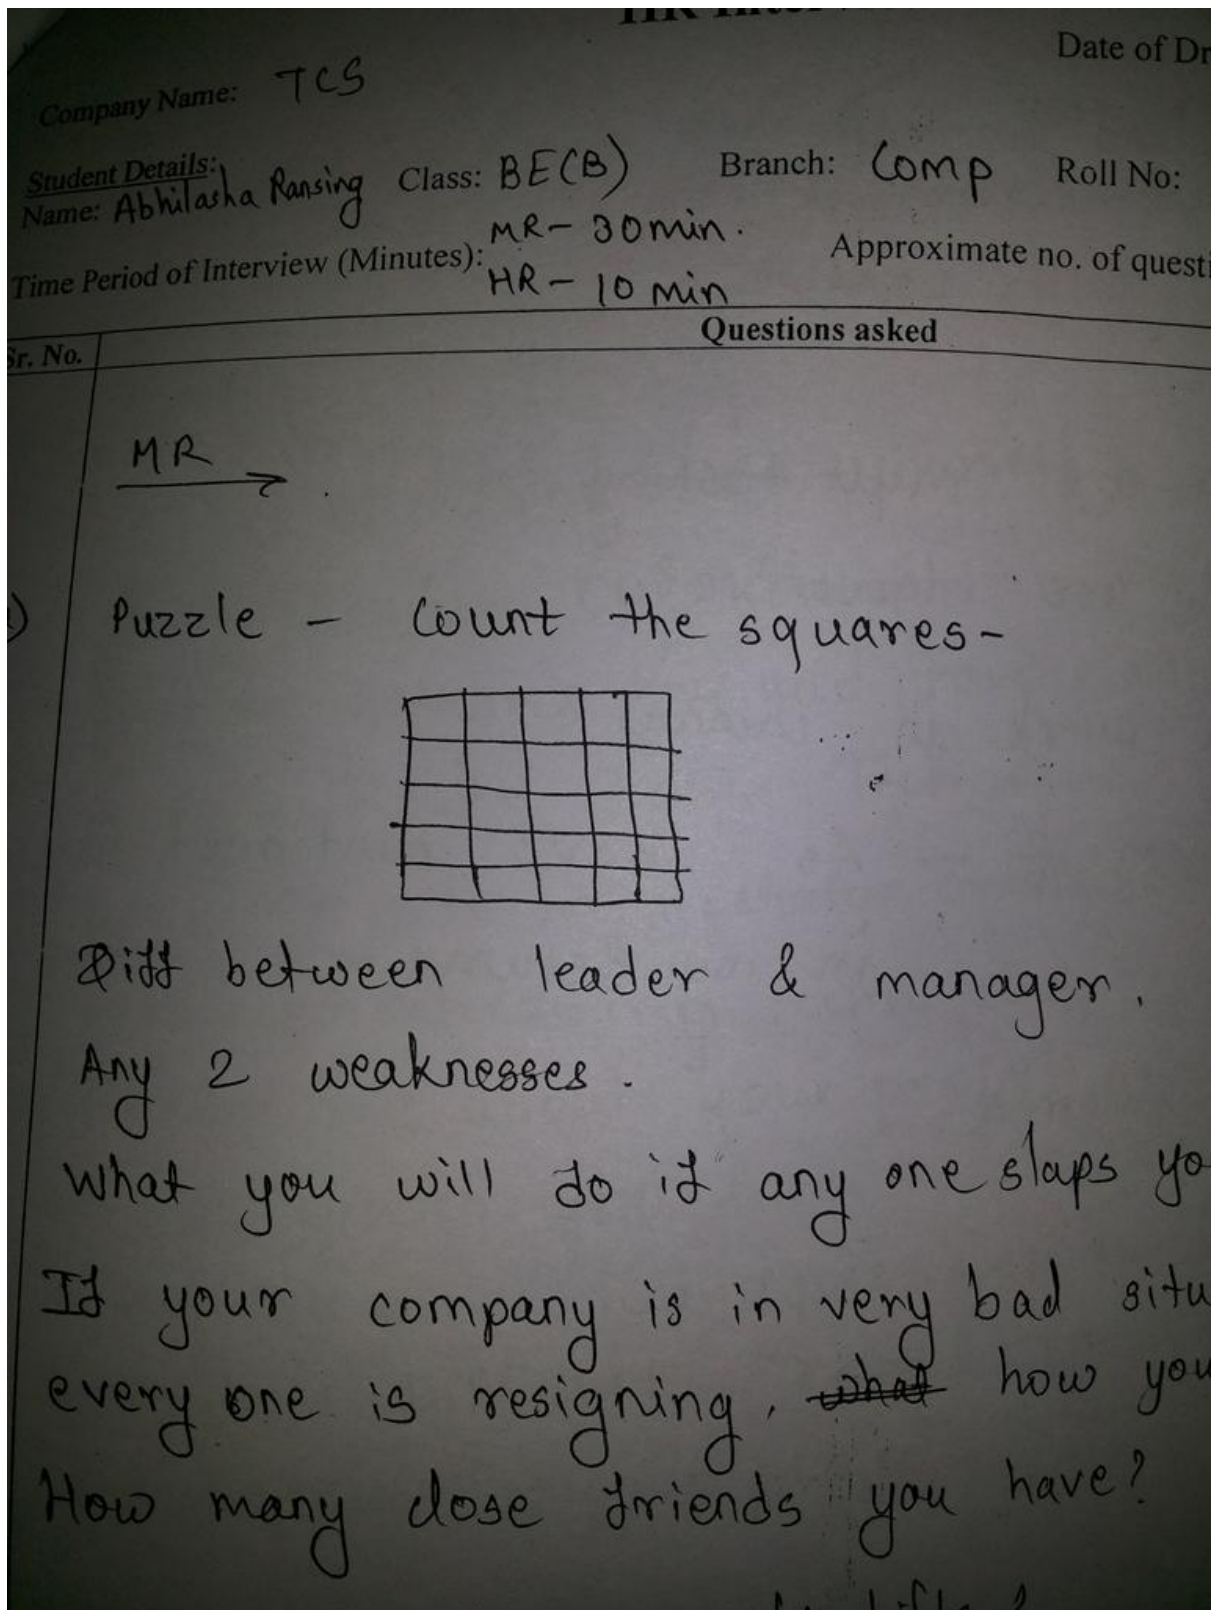 HR Interv
Date of Dr
Company Name: TCS
Student Details:
Name: Abhilasha Ransing Class: BE(B) Branch: Comp Roll No:
Time Period of Interview (Minutes): MR - 30 min.
HR - 10 min
Approximate no. of questi
Sr. No. Questions asked
MR
) Puzzle - Count the squares-
Diff between leader & manager.
Any 2 weaknesses.
What you will do if any one slaps yo
If your company is in very bad situ
every one is resigning, what how you
How many close friends you have?